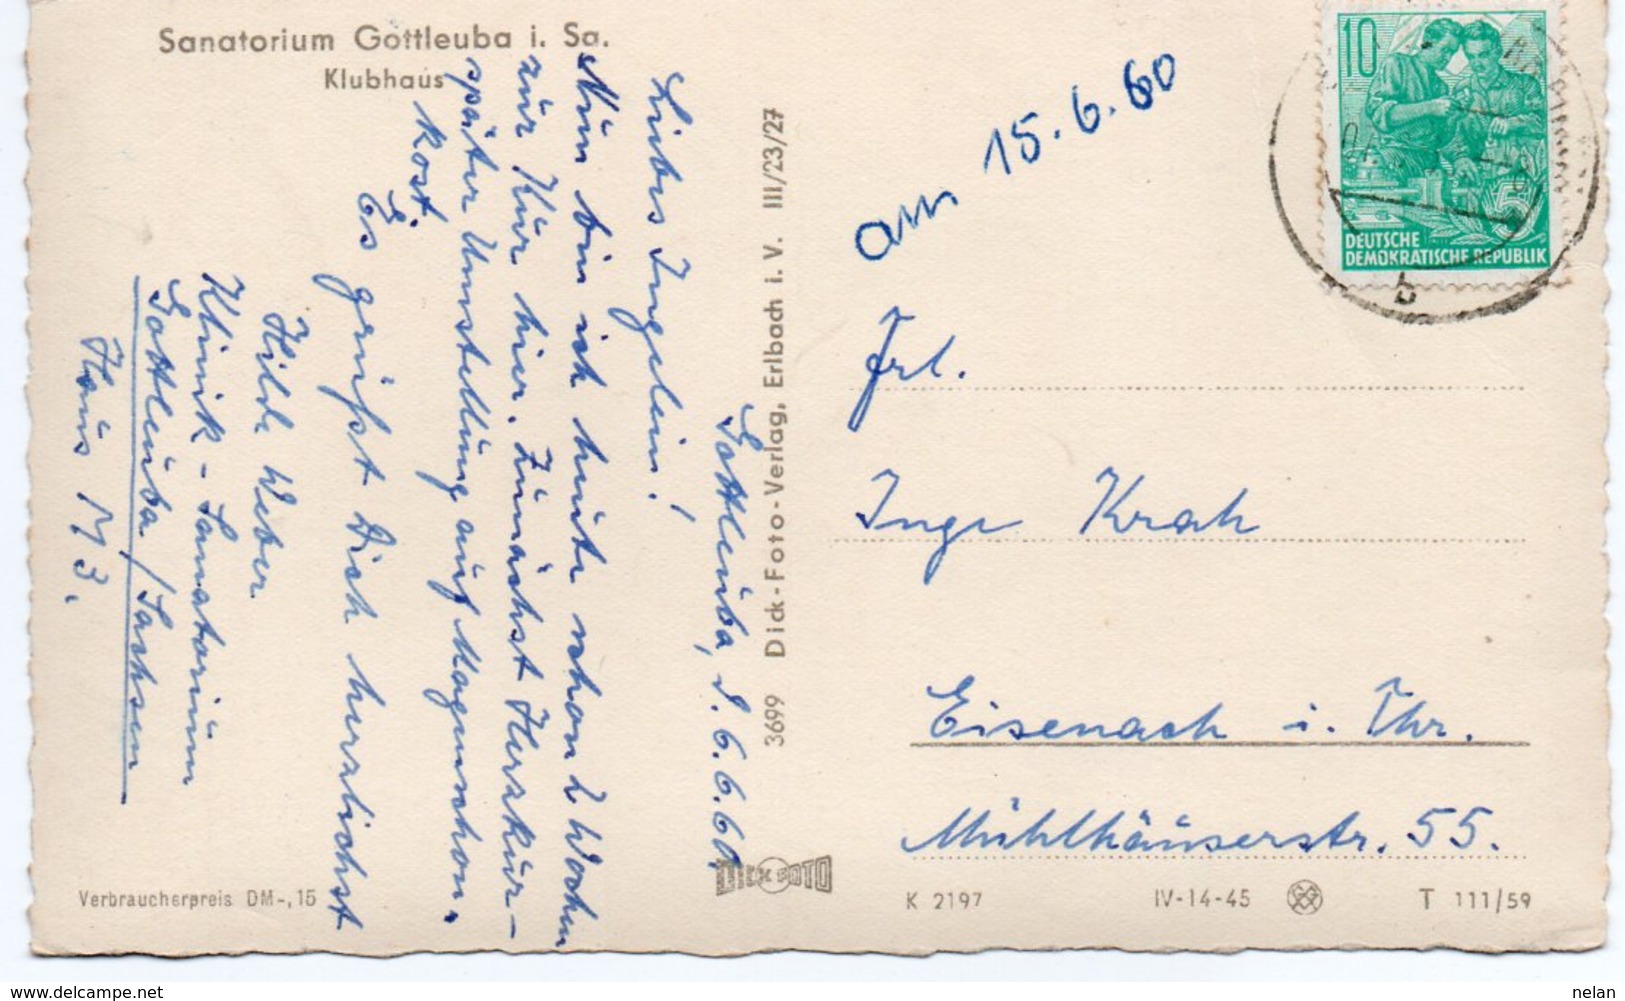 Sanatorium Gottleuba i. Sa.
Klubhaus
Gottleuba, d. 6.6.60
Liebes Ingelein!
Nun bin ich heute schon 2 Wochen
zur Kur hier. Zunächst Herzkur-
später Umstellung auf Magenschon-
kost.
Es grüßt Dich herzlichst
Hilde Weber
Klinik-Sanatorium
Gottleuba/Sachsen
Haus M3.
3699 Dick-Foto-Verlag, Erlbach i. V. III/23/27
DICK FOTO
Verbraucherpreis DM -,15
am 15.6.60
10
5
DEUTSCHE
DEMOKRATISCHE REPUBLIK
b
Frl.
Inge Krah
Eisenach i. Thr.
Mühlhäuserstr. 55.
K 2197
IV-14-45
T 111/59
www.delcampe.net
nelan